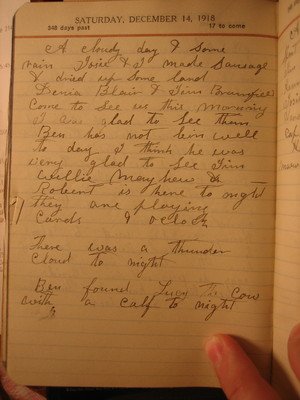 SATURDAY, DECEMBER 14, 1918
348 days past 17 to come
A cloudy day & Some
rain Joice & I made Sausage
& dried up Some land
Denia Blair & Tim
Come to See us this Morning
I was glad to See them
Ben has not bin well
to day I think he was
very glad to See Tim
Willie Mayhew &
Robert is here to night
they are playing
Cards 9 oclock
There was a thunder
Cloud to night
Ben found Lucy the Cow
with a calf to night